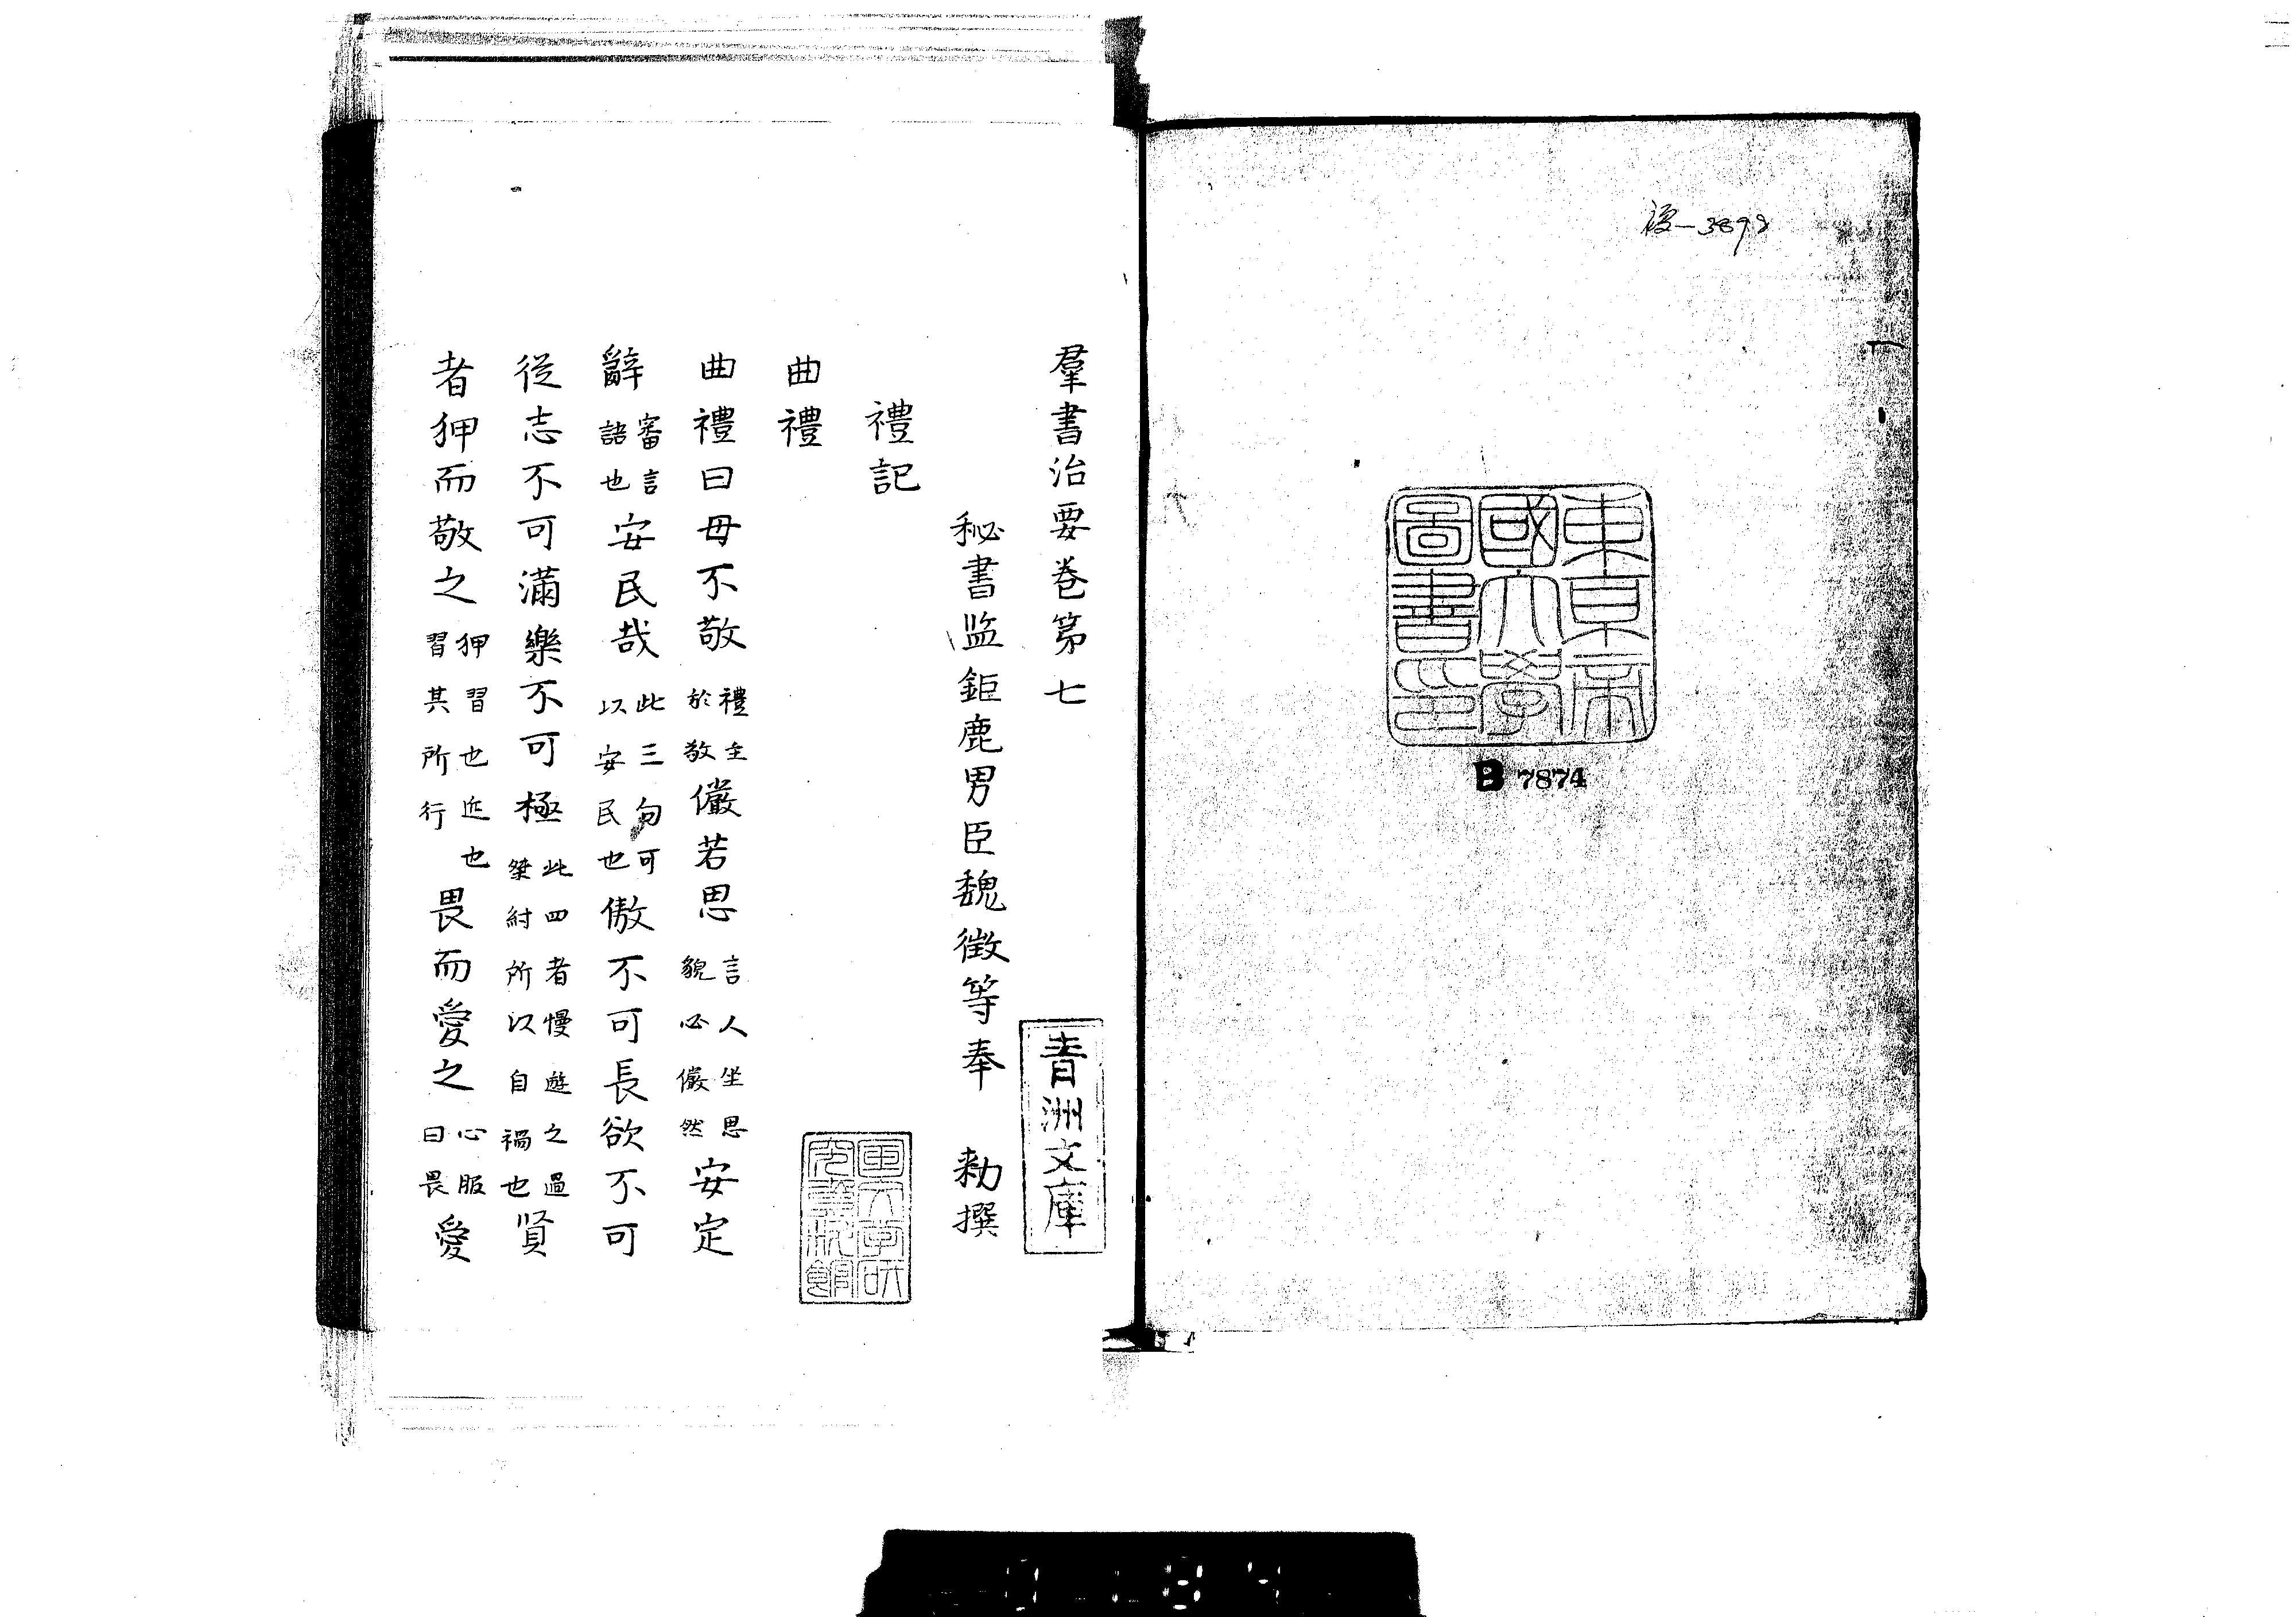 復-3898
東京帝
國大學
圖書印
B 7874
羣書治要卷第七
青洲文庫
秘書監鉅鹿男臣魏徵等奉 勅撰
禮記
曲禮
曲禮曰毋不敬禮主於敬儼若思言人坐思貌必儼然安定
辭審言語也安民哉此三句可以安民也傲不可長欲不可
從志不可滿樂不可極此四者慢遊之過桀紂所以自禍也賢
者狎而敬之狎習也近也習其所行畏而愛之心服曰畏愛